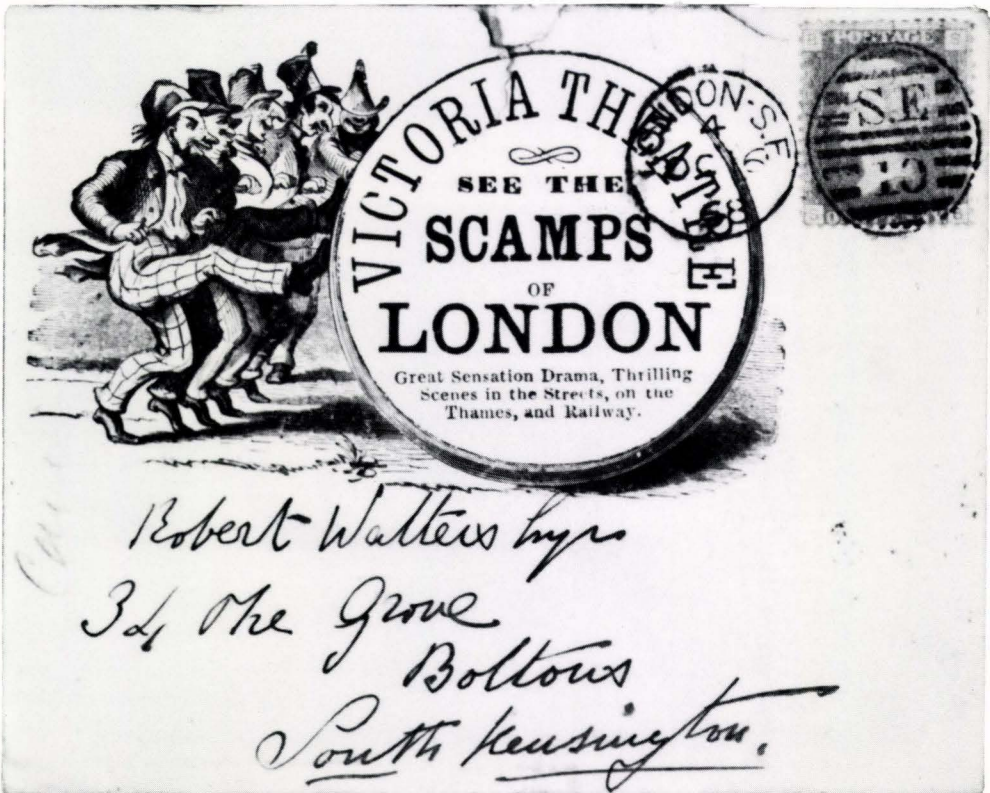 VICTORIA THEATRE
SEE THE
SCAMPS
OF
LONDON
Great Sensation Drama, Thrilling
Scenes in the Streets, on the
Thames, and Railway.
LONDON-S.E.
POSTAGE
S.E
Robert Watters
34 The Grove
Boltons
South Kensington.